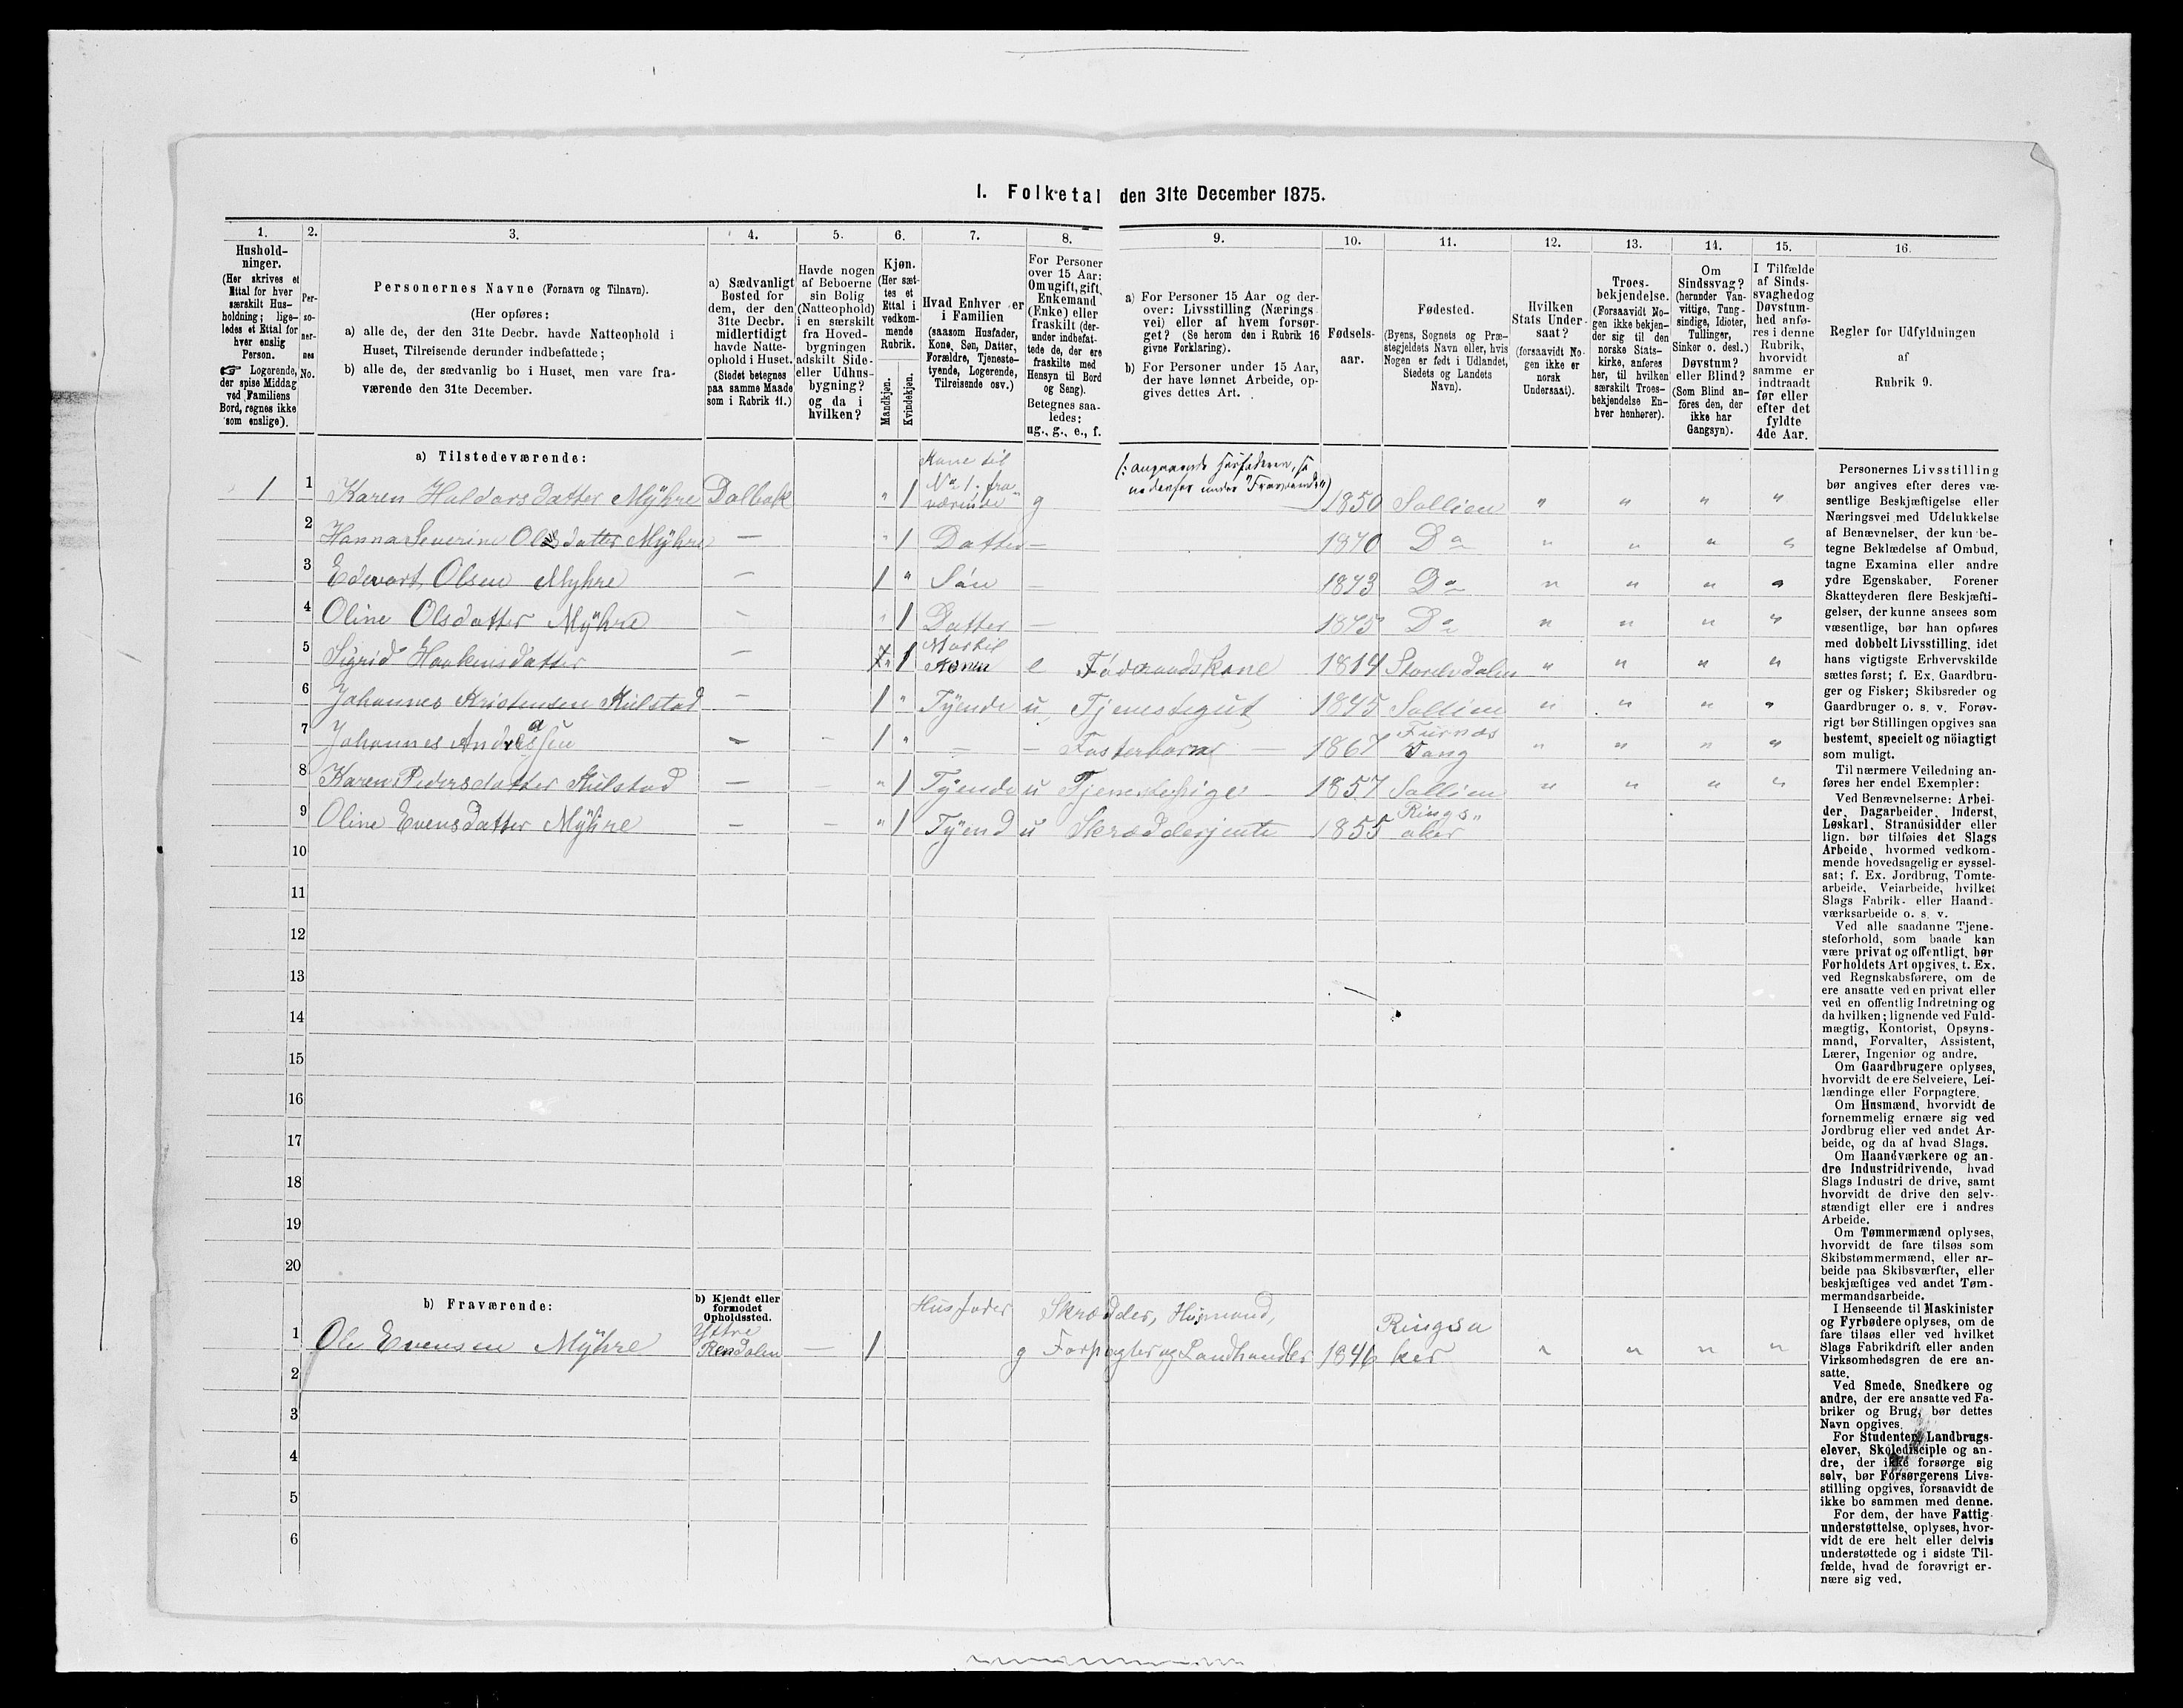 I. Folketal den 31te December 1875.
1. 2. 3. 4. 5. 6. 7. 8. 9. 10. 11. 12. 13. 14. 15. 16.
Hushold-
ninger.
(Her skrives et
Ettal for hver
særskilt Hus-
holdning; lige-
ledes et Ettal for
hver enslig
Person.
☞ Logerende,
der spise Middag
ved Familiens
Bord, regnes ikke
som enslige).
Per-
so-
ner-
nes
No.
Personernes Navne (Fornavn og Tilnavn).
(Her opføres:
a) alle de, der den 31te Decbr. havde Natteophold i
Huset, Tilreisende derunder indbefattede;
b) alle de, der sædvanlig bo i Huset, men vare fra-
værende den 31te December.
a) Sædvanligt
Bosted for
dem, der den
31te Decbr.
midlertidigt
havde Natte-
ophold i Huset.
(Stedet betegnes
paa samme Maade
som i Rubrik 11.)
Havde nogen
af Beboerne
sin Bolig
(Natteophold)
i en særskilt
fra Hoved-
bygningen
adskilt Side-
eller Udhus-
bygning?
og da i
hvilken?
Kjøn.
(Her sæt-
tes et
Ettal i
vedkom-
mende
Rubrik.
Mandkjøn.
Kvindekjøn.
Hvad Enhver er
i Familien
(saasom Husfader,
Kone, Søn, Datter,
Forældre, Tjeneste-
tyende, Logerende,
Tilreisende osv.)
For Personer
over 15 Aar:
Om ugift, gift,
Enkemand
(Enke) eller
fraskilt (der-
under indbefat-
tede de, der ere
fraskilte med
Hensyn til Bord
og Seng).
Betegnes saa-
ledes:
ug., g., e., f.
a) For Personer 15 Aar og der-
over: Livsstilling (Nærings-
vei) eller af hvem forsør-
get? (Se herom den i Rubrik 16
givne Forklaring).
b) For Personer under 15 Aar,
der have lønnet Arbeide, op-
gives dettes Art.
Fødsels-
aar.
Fødested.
(Byens, Sognets og Præ-
stegjeldets Navn eller, hvis
Nogen er født i Udlandet,
Stedets og Landets
Navn).
Hvilken
Stats Under-
saat?
(forsaavidt No-
gen ikke er
norsk
Undersaat).
Troes-
bekjendelse.
(Forsaavidt No-
gen ikke bekjen-
der sig til den
norske Stats-
kirke, anføres
her, til hvilken
særskilt Troes-
bekjendelse En-
hver henhører).
Om
Sindssvag?
(herunder Van-
vittige, Tung-
sindige, Idioter,
Tullinger,
Sinker o. desl.)
Døvstum?
eller Blind?
(Som Blind an-
føres den, der
ikke har
Gangsyn).
I Tilfælde
af Sinds-
svaghed og
Døvstum-
hed anfø-
res i denne
Rubrik,
hvorvidt
samme er
indtraadt
før eller
efter det
fyldte
4de Aar.
Regler for Udfyldningen
af
Rubrik 9.
a) Tilstedeværende:
1 1 Karen Haldorsdatter Mÿhre Dalbak " 1 Kone til No 1. fra "værende" g (: angaaende Husfaderen, se nedenfor under "Fraværende") 1850 Sollien " " " "
2 Hanna Severine Olsdatter Mÿhre — " 1 Datter — 1870 Do " " " "
3 Edevart Olsen Myhre — 1 " Søn — 1873 Do " " " "
4 Oline Olsdatter Mÿhre — " 1 Datter — 1875 Do " " " "
5 Sigrid Haakensdatter — " 1 Mor til Konen e Føderaadskone 1814 Storelvdalen " " " "
6 Johannes Kristensen Kulstad — 1 " Tÿende u Tjenestegut 1845 Sollien " " " "
7 Johannes Andreassen — — 1 " — — Fosterbarn — 1867 Furnæs Vang " " " "
8 Karen Pedersdatter Kulstad — — " 1 Tÿende u Tjenestepige — 1857 Sollien " " " "
9 Oline Evensdatter Mÿhre — — " 1 Tÿend u Skrædderjente 1855 Rings" aker
10
11
12
13
14
15
16
17
18
19
20
b) Fraværende:
b) Kjendt eller
formodet
Opholdssted.
1 Ole Evensen Mÿhre Yttre Rendalen — 1 Husfader g Skrædder, Husmand, Forpagter og Landhandler 1846 Ringsaker " " " "
2
3
4
5
6
Personernes Livsstilling
bør angives efter deres væ-
sentlige Beskjæftigelse eller
Næringsvei med Udelukkelse
af Benævnelser, der kun be-
tegne Beklædelse af Ombud,
tagne Examina eller andre
ydre Egenskaber. Forener
Skatteyderen flere Beskjæfti-
gelser, der kunne ansees som
væsentlige, bør han opføres
med dobbelt Livsstilling, idet
hans vigtigste Erhvervskilde
sættes først; f. Ex. Gaardbru-
ger og Fisker; Skibsreder og
Gaardbruger o. s. v. Forøv-
rigt bør Stillingen opgives saa
bestemt, specielt og nöiagtigt
som muligt.
Til nærmere Veiledning an-
føres her endel Exempler:
Ved Benævnelserne: Arbei-
der, Dagarbeider, Inderst,
Løskarl, Strandsidder eller
lign. bør tilføies det Slags
Arbeide, hvormed vedkom-
mende hovedsagelig er syssel-
sat; f. Ex. Jordbrug, Tomte-
arbeide, Veiarbeide, hvilket
Slags Fabrik- eller Haand-
værksarbeide o. s. v.
Ved alle saadanne Tjene-
steforhold, som baade kan
være privat og offentligt, bør
Forholdets Art opgives, t. Ex.
ved Regnskabsførere, om de
ere ansatte ved en privat eller
ved en offentlig Indretning og
da hvilken; lignende ved Fuld-
mægtig, Kontorist, Opsyns-
mand, Forvalter, Assistent,
Lærer, Ingeniør og andre.
Om Gaardbrugere oplyses,
hvorvidt de ere Selveiere, Lei-
lændinge eller Forpagtere.
Om Husmænd, hvorvidt de
fornemmelig ernære sig ved
Jordbrug eller ved andet Ar-
beide, og da af hvad Slags.
Om Haandværkere og an-
dre Industridrivende, hvad
Slags Industri de drive, samt
hvorvidt de drive den selv-
stændigt eller ere i andres
Arbeide.
Om Tømmermænd oplyses,
hvorvidt de fare tilsøs som
Skibstømmermænd, eller ar-
beide paa Skibsværfter, eller
beskjæftiges ved andet Tøm-
mermandsarbeide.
I Henseende til Maskinister
og Fyrbødere oplyses, om de
fare tilsøs eller ved hvilket
Slags Fabrikdrift eller anden
Virksomhedsgren de ere an-
satte.
Ved Smede, Snedkere og
andre, der ere ansatte ved Fa-
briker og Brug, bør dettes
Navn opgives.
For Studenter, Landbrugs-
elever, Skoledisciple og an-
dre, der ikke forsørge sig
selv, bør Forsørgerens Livs-
stilling opgives, forsaavidt de
ikke bo sammen med denne.
For dem, der have Fattig-
understøttelse, oplyses, hvor-
vidt de ere helt eller delvis
understøttede og i sidste Til-
fælde, hvad de forøvrigt er-
nære sig ved.